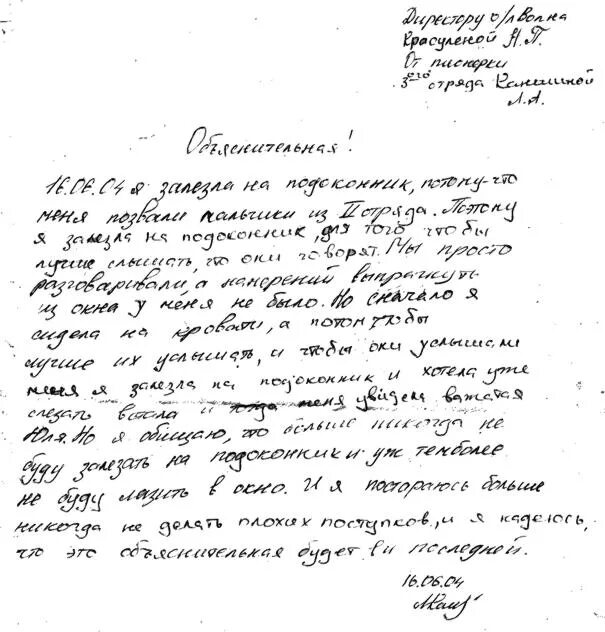 Директору о/л Волна
Красуленой Н.П.
От пионерки
3его отряда Канишиной
Л.А.
Объяснительная!
16.06.04 я залезла на подоконник, потому-что
меня позвали мальчики из II отряда. Потому
я залезла на подоконник, для того чтобы
лучше слышать, что они говорят. Мы просто
разговаривали, а намерений выпрагнуть
из окна у меня не было. Но сначало я
сидела на кровати, а потом чтобы
лучше их услышать, и чтобы они услышали
меня я залезла на подоконник и хотела уже
слезать встала и тогда меня увидела важатая
Юля. Но я обищаю, что больше никогда не
буду залезать на подоконник и уж темболее
не буду лазить в окно. И я постораюсь больше
никогда не делать плохих поступков, и я надеюсь,
что это объяснительная будет и последней.
16.06.04